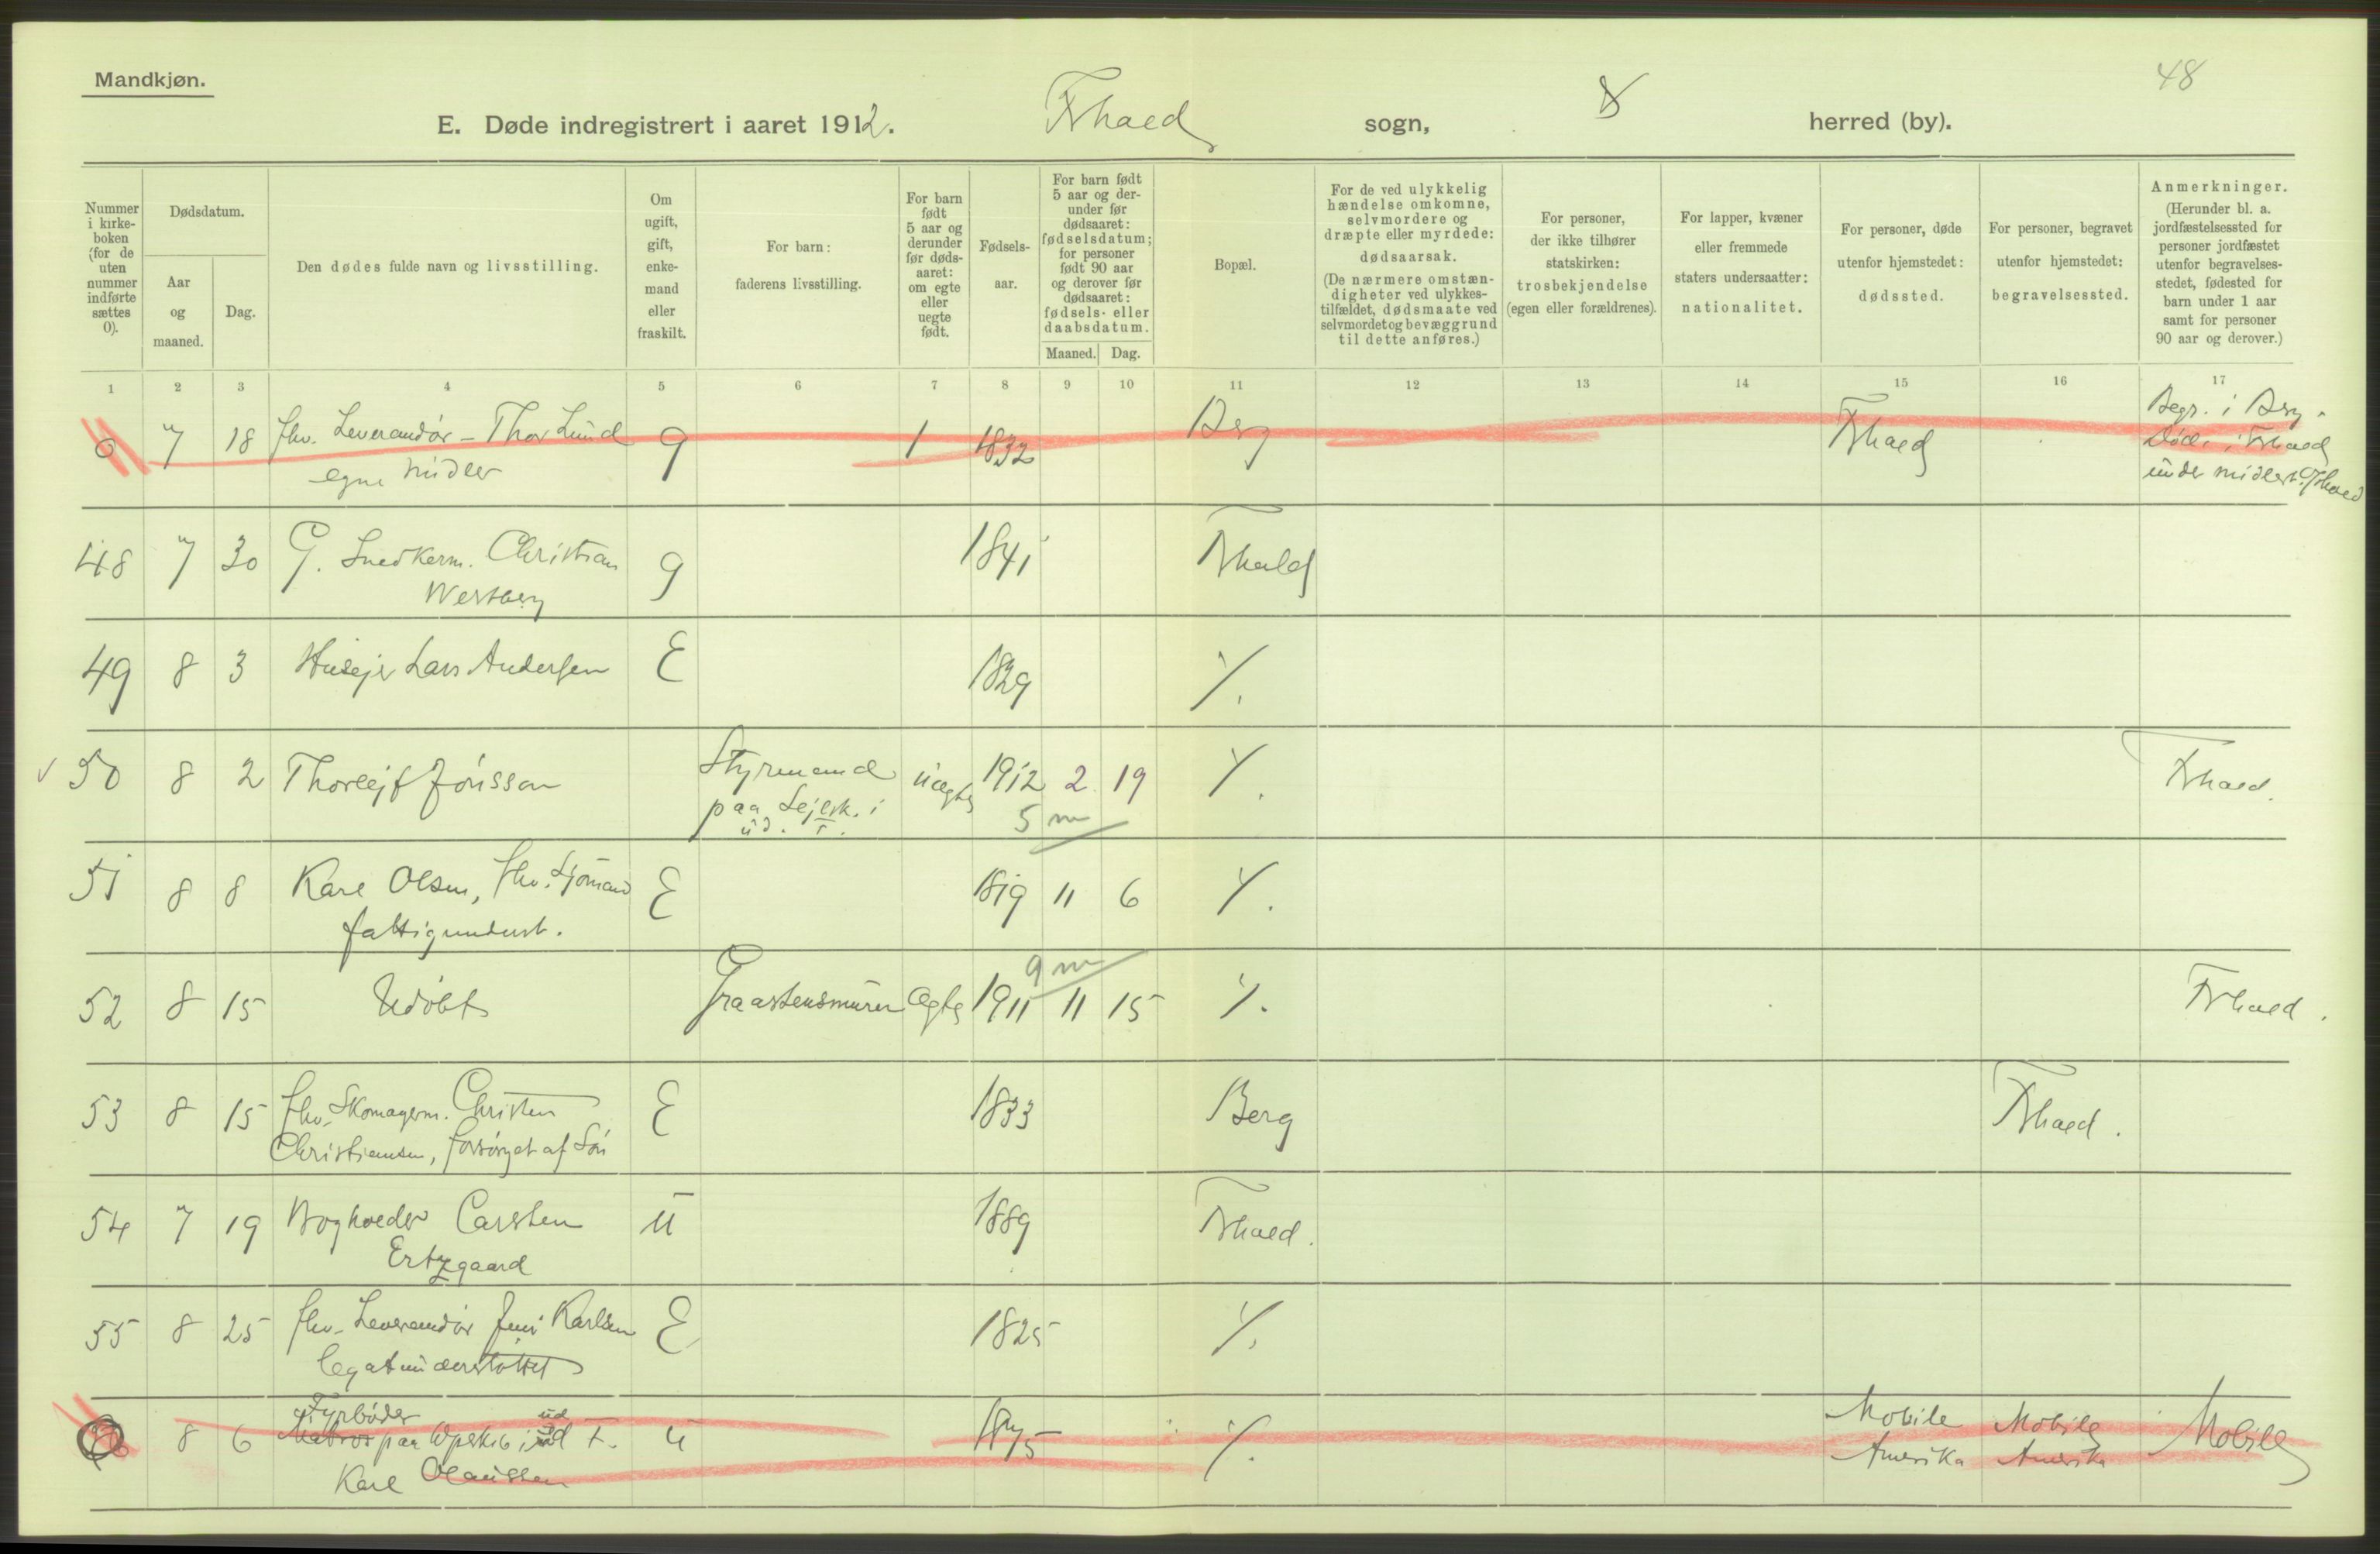 Mandkjøn.
48
E. Døde indregistrert i aaret 1912. Frhald sogn, herred (by).
Nummer i kirke-boken (for de uten nummer indførte sættes 0).
Dødsdatum.
Aar og maaned.
Dag.
Den dødes fulde navn og livsstilling.
Om ugift, gift, enke-mand eller fraskilt.
For barn: faderens livsstilling.
For barn født 5 aar og derunder før døds-aaret: om egte eller uegte født.
Fødsels-aar.
For barn født 5 aar og der-under før dødsaaret: fødselsdatum; for personer født 90 aar og derover før dødsaaret: fødsels- eller daabsdatum.
Maaned. Dag.
Bopæl.
For de ved ulykkelig hændelse omkomne, selvmordere og dræpte eller myrdede: dødsaarsak.
(De nærmere omstæn-digheter ved ulykkes-tilfældet, dødsmaate ved selvmordet og bevæggrund til dette anføres.)
For personer, der ikke tilhører statskirken: trosbekjendelse (egen eller forældrenes).
For lapper, kvæner eller fremmede staters undersaatter: nationalitet.
For personer, døde utenfor hjemstedet: dødssted.
For personer, begravet utenfor hjemstedet: begravelsessted.
Anmerkninger.
(Herunder bl. a. jordfæstelsessted for personer jordfæstet utenfor begravelses-stedet, fødested for barn under 1 aar samt for personer 90 aar og derover.)
1 2 3 4 5 6 7 8 9 10 11 12 13 14 15 16 17
0 7 18 fhv. Leverandør - Thor Lund g 1 1832 Berg Frhald Begr. i Berg.
egne midler Død i Frhald
under midlert. Ophold
48 7 30 G. Snedkerm. Christian g 1841 Frhald
Westberg
49 8 3 Husejer Lars Andersen E 1829 〃.
50 8 2 Thorleif Jönsson Styrmand uægte 1912 2 19 〃. Frhald.
paa Sejlsk. i 5 m
ud. F.
51 8 8 Karl Olsen, fhv. Sjömand E 1819 11 6 〃.
fattigunderst.
9 m
52 8 15 Udöbt Graastensmurer Ægte 1911 11 15 〃. Frhald.
53 8 15 fhv. Skomagerm. Christen E 1833 Berg Frhald.
Christiansen, forsörget af Sön
54 7 19 Bogholder Carsten u 1889 Frhald.
Ertzgaard
55 8 25 fhv. Leverandör Jens Karlsen E 1825 〃.
legatunderstöttet
Fyrböder ud
8 6 Matros paa Dpskib i ud F. u 1875 〃. Mobile Mobile Mobile
Karl Olaussen Amerika Amerika